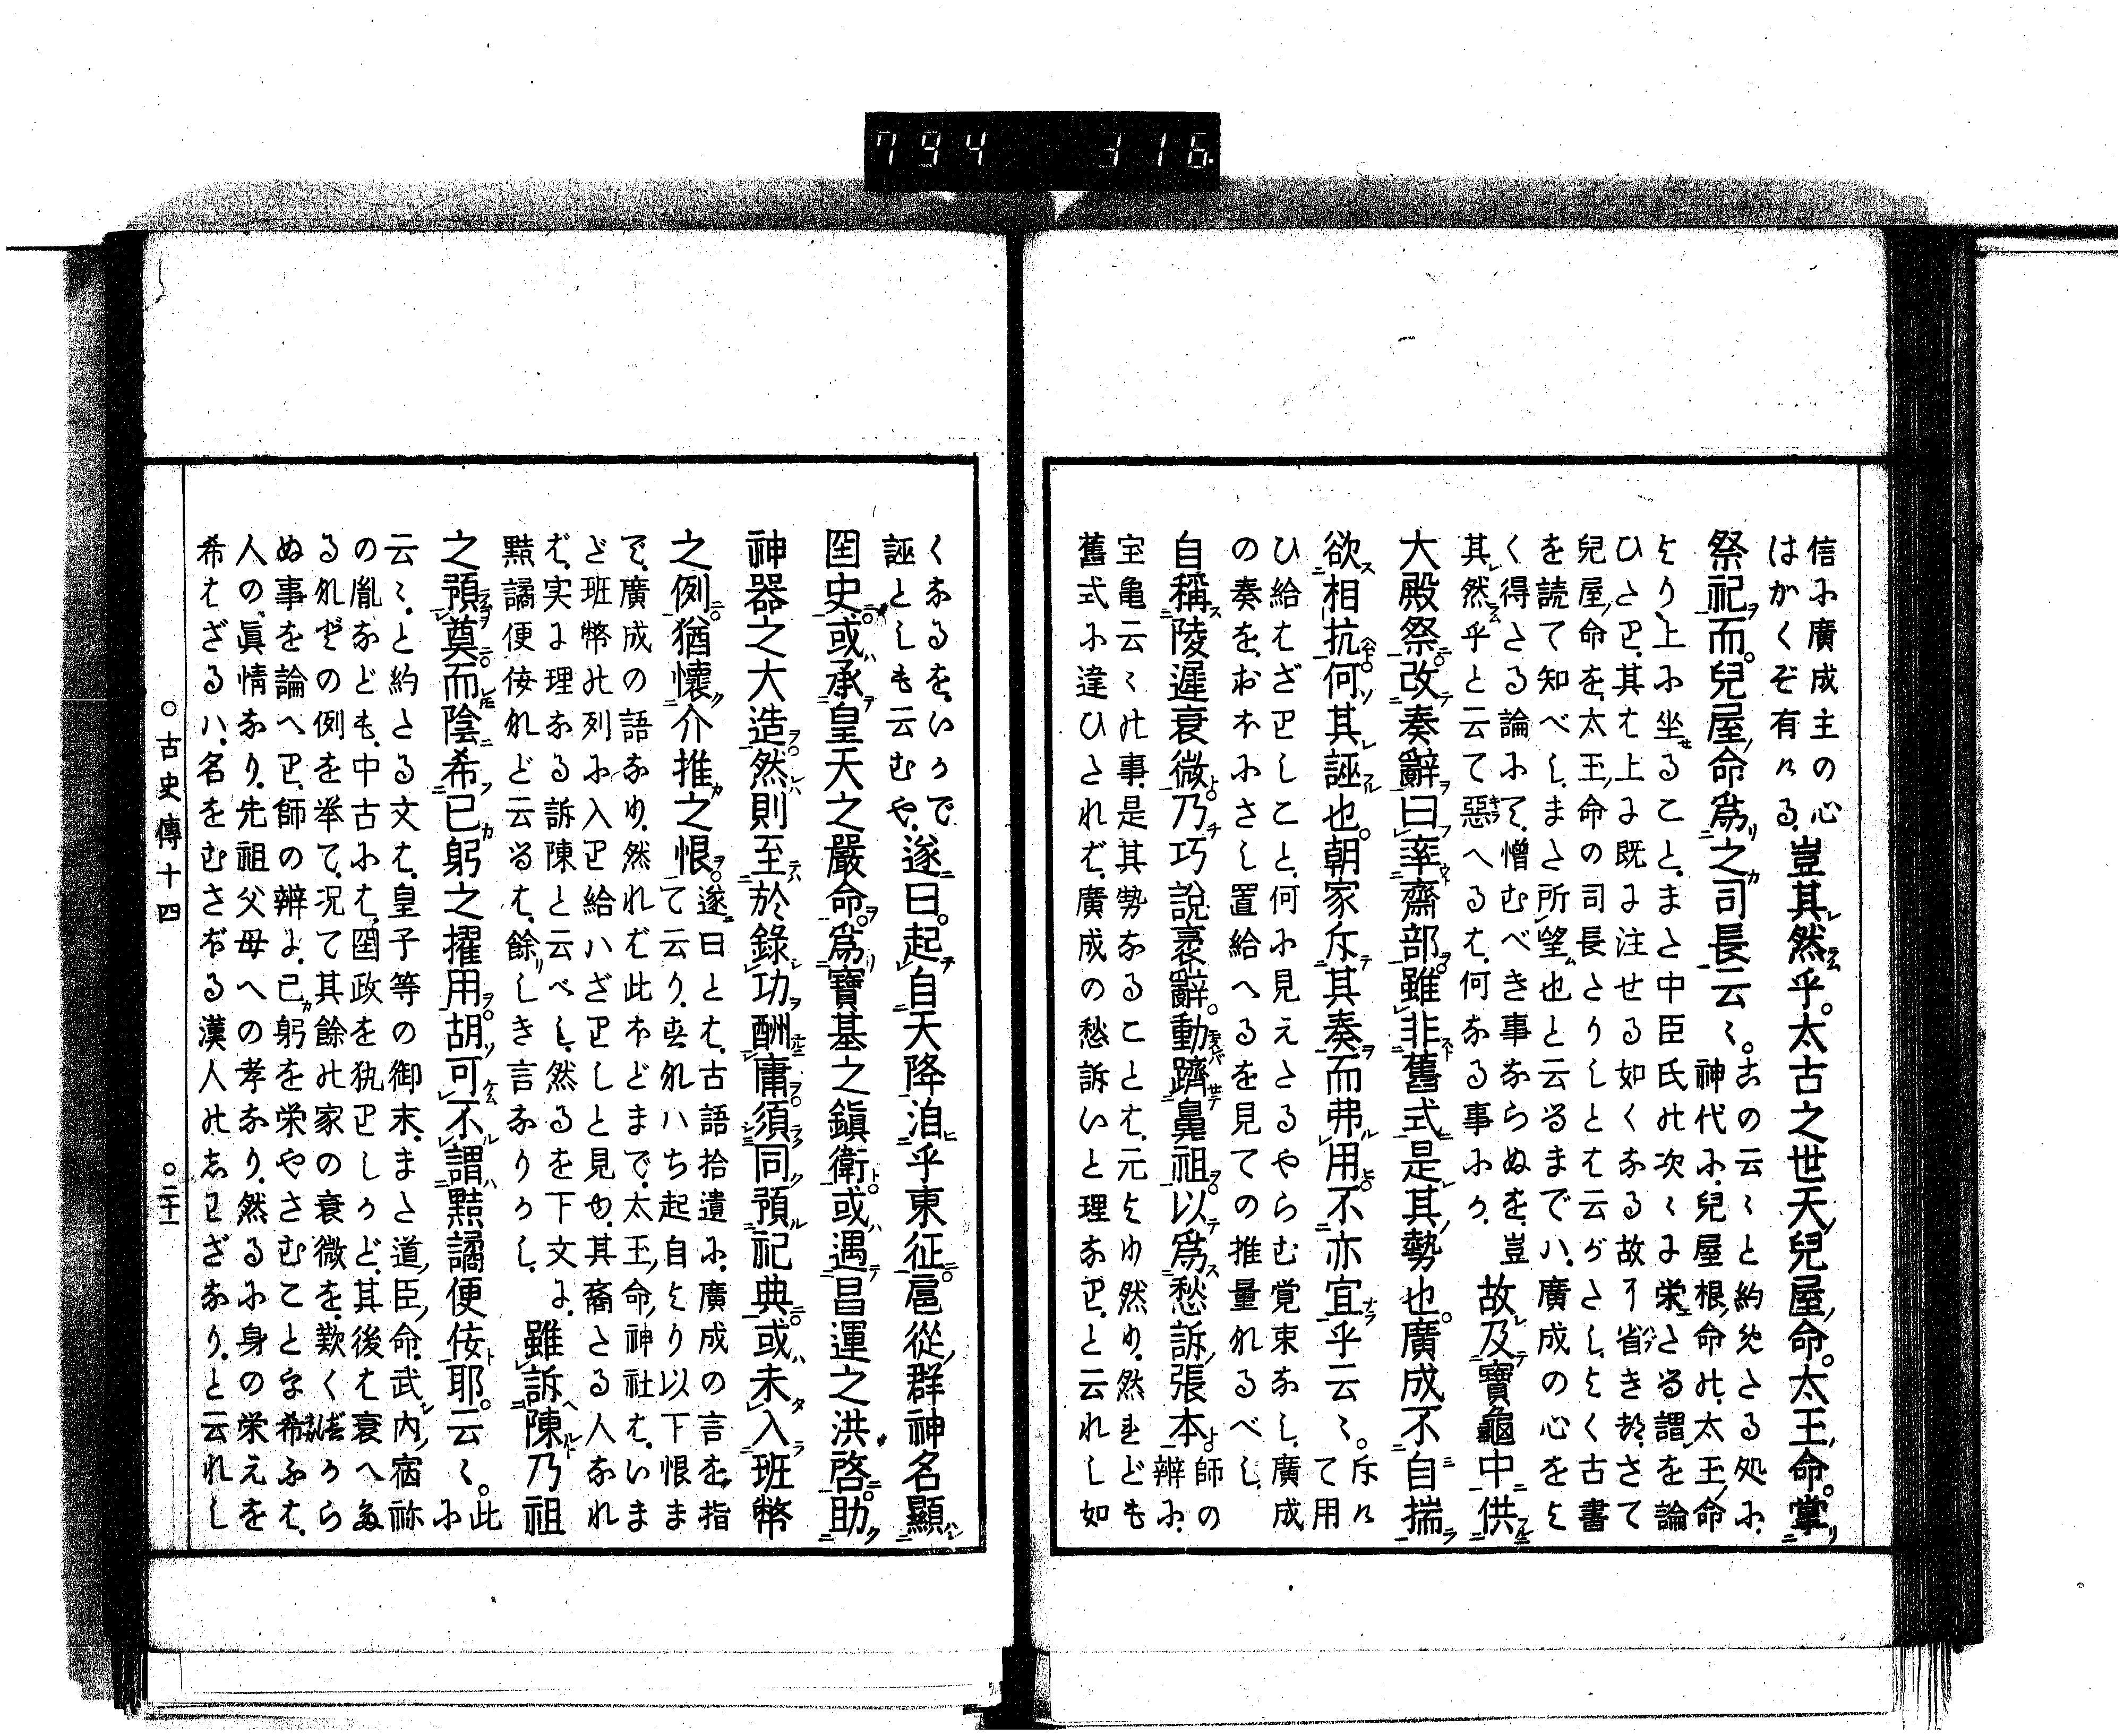 794 316
信に廣成主の心
はかくぞ有ける
豈其然乎。太古之世天兒屋命。太玉命。掌
祭祀而。兒屋命爲之司長云々。
古の云々と約めたる処に、
神代に、兒屋根命の、太玉命
より、上に坐ること、また中臣氏の次々に栄たる謂を論
ひたり、其は上に既に注せる如くなる故に省き
兒屋命を、太玉命の司長たりしとは云がたし、よく古書
を読て知べし、また所望也と云るまでハ、廣成の心をよ
く得たる論にて、憎むべき事ならぬを、豈
其然乎と云て惡へるは、何なる事にか、
故及寶龜中供
大殿祭改奏辭曰率齋部雖非舊式是其勢也。廣成不自揣
欲相抗何其誣也。朝家斥其奏而弗用不亦宜乎云々。
斥け
て用
ひ給はざりしこと、何に見えたるやらむ覚束なし、廣成
の奏を、おほにさし置給へるを見ての推量れるべし、
自稱陵遲衰微乃巧說褒辭。動躋鼻祖以爲愁訴張本
師の
辨に、
宝亀云々の事、是其勢なることは、元より然り、然れども
舊式に違ひたれば、廣成の愁訴いと理なり、と云れし如
くなるを、いかで
誣としも云むや、
遂曰。起自天降洎乎東征。扈從群神名顯
国史。或承皇天之嚴命。爲寶基之鎮衛。或遇昌運之洪啓。助
神器之大造。然則至於錄功酬庸。須同預祀典。或未入班幣
之例。猶懷介推之恨。
遂曰とは、古語拾遺に、廣成の言を、指
て云り、其れハち起自より以下恨ま
で、廣成の語なり、然れば此ほどまで、太玉命神社は、いま
ど班幣の列に入り給ハざりしと見ゆ、其裔たる人なれ
ば、実に理なる訴陳と云べし、然るを下文に、
點譎便佞れど云るは、餘しき言なりかし、
雖訴陳乃祖
之預奠而陰希已躬之擢用。胡可不謂黠譎便佞耶。云々。
此
に
云々、と約たる文は、皇子等の御末、また道臣命、武内宿祢
の胤なども、中古には、国政を執りしかど、其後は衰へた
るれどの例を挙て、况て其餘の家の衰微を、歎くばから
ぬ事を論へり、師の辨に、已躬を栄やさむことを希ふは、
人の、眞情なり、先祖父母への孝なり、然るに身の栄えを
希はざるハ、名をむさぼる漢人のしわざなり、と云れし
○古史傳十四
○二十一